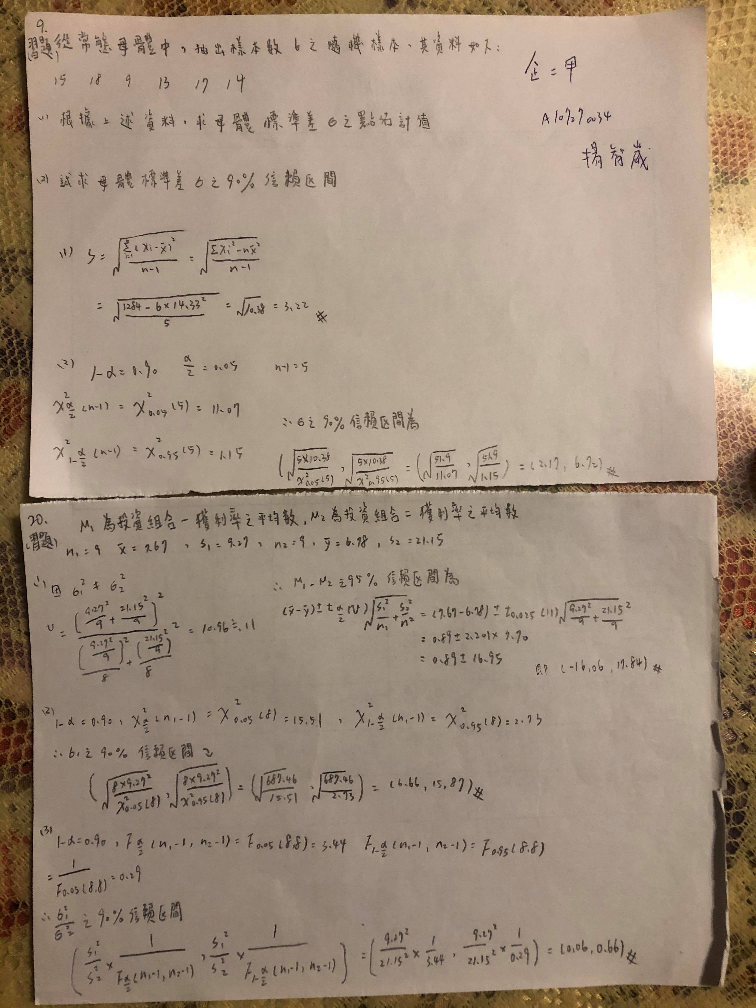 9.
(習題) 從常態母體中，抽出樣本數 6 之隨機樣本，其資料如下：
15 18 9 13 17 14
企二甲
A10727034
楊智崴
(1) 根據上述資料，求母體標準差 σ 之點估計值
(2) 試求母體標準差 σ 之 90% 信賴區間
(1) S = √(Σ(xi-x̄)²/(n-1)) = √((Σxi²-nx̄²)/(n-1))
= √((1284-6×14.33²)/5) = √10.38 = 3.22 #
(2) 1-α=0.90 α/2=0.05 n-1=5
χ²α/2(n-1) = χ²0.05(5) = 11.07
χ²1-α/2(n-1) = χ²0.95(5) = 1.15
∴ σ 之 90% 信賴區間為
(√(5×10.38/χ²0.05(5)), √(5×10.38/χ²0.95(5))) = (√(51.9/11.07), √(51.9/1.15)) = (2.17, 6.72) #
20.
(習題) M₁ 為投資組合一獲利率之平均數，M₂ 為投資組合二獲利率之平均數
n₁=9 x̄=7.67, s₁=9.29, n₂=9, ȳ=6.78, s₂=21.15
(1) 因 σ₁² ≠ σ₂²
υ = (9.29²/9 + 21.15²/9)² / ((9.29²/9)²/8 + (21.15²/9)²/8) = 10.96 ≒ 11
∴ M₁-M₂ 之 95% 信賴區間為
(x̄-ȳ) ± tα/2(υ)√(s₁²/n₁ + s₂²/n²) = (7.67-6.78) ± t0.025(11)√(9.29²/9 + 21.15²/9)
= 0.89 ± 2.201 × 7.70
= 0.89 ± 16.95
即 (-16.06, 17.84) #
(2) 1-α=0.90, χ²α/2(n₁-1) = χ²0.05(8) = 15.51, χ²1-α/2(n₁-1) = χ²0.95(8) = 2.73
∴ σ₁ 之 90% 信賴區間
(√(8×9.29²/χ²0.05(8)), √(8×9.29²/χ²0.95(8))) = (√(689.46/15.51), √(689.46/2.73)) = (6.66, 15.87) #
(3) 1-α=0.90, Fα/2(n₁-1, n₂-1) = F0.05(8.8) = 3.44 F1-α/2(n₁-1, n₂-1) = F0.95(8.8)
= 1/F0.05(8.8) = 0.29
∴ σ₁²/σ₂² 之 90% 信賴區間
(s₁²/s₂² × 1/Fα/2(n₁-1, n₂-1), s₁²/s₂² × 1/F1-α/2(n₁-1, n₂-1)) = (9.29²/21.15² × 1/3.44, 9.29²/21.15² × 1/0.29) = (0.06, 0.66) #